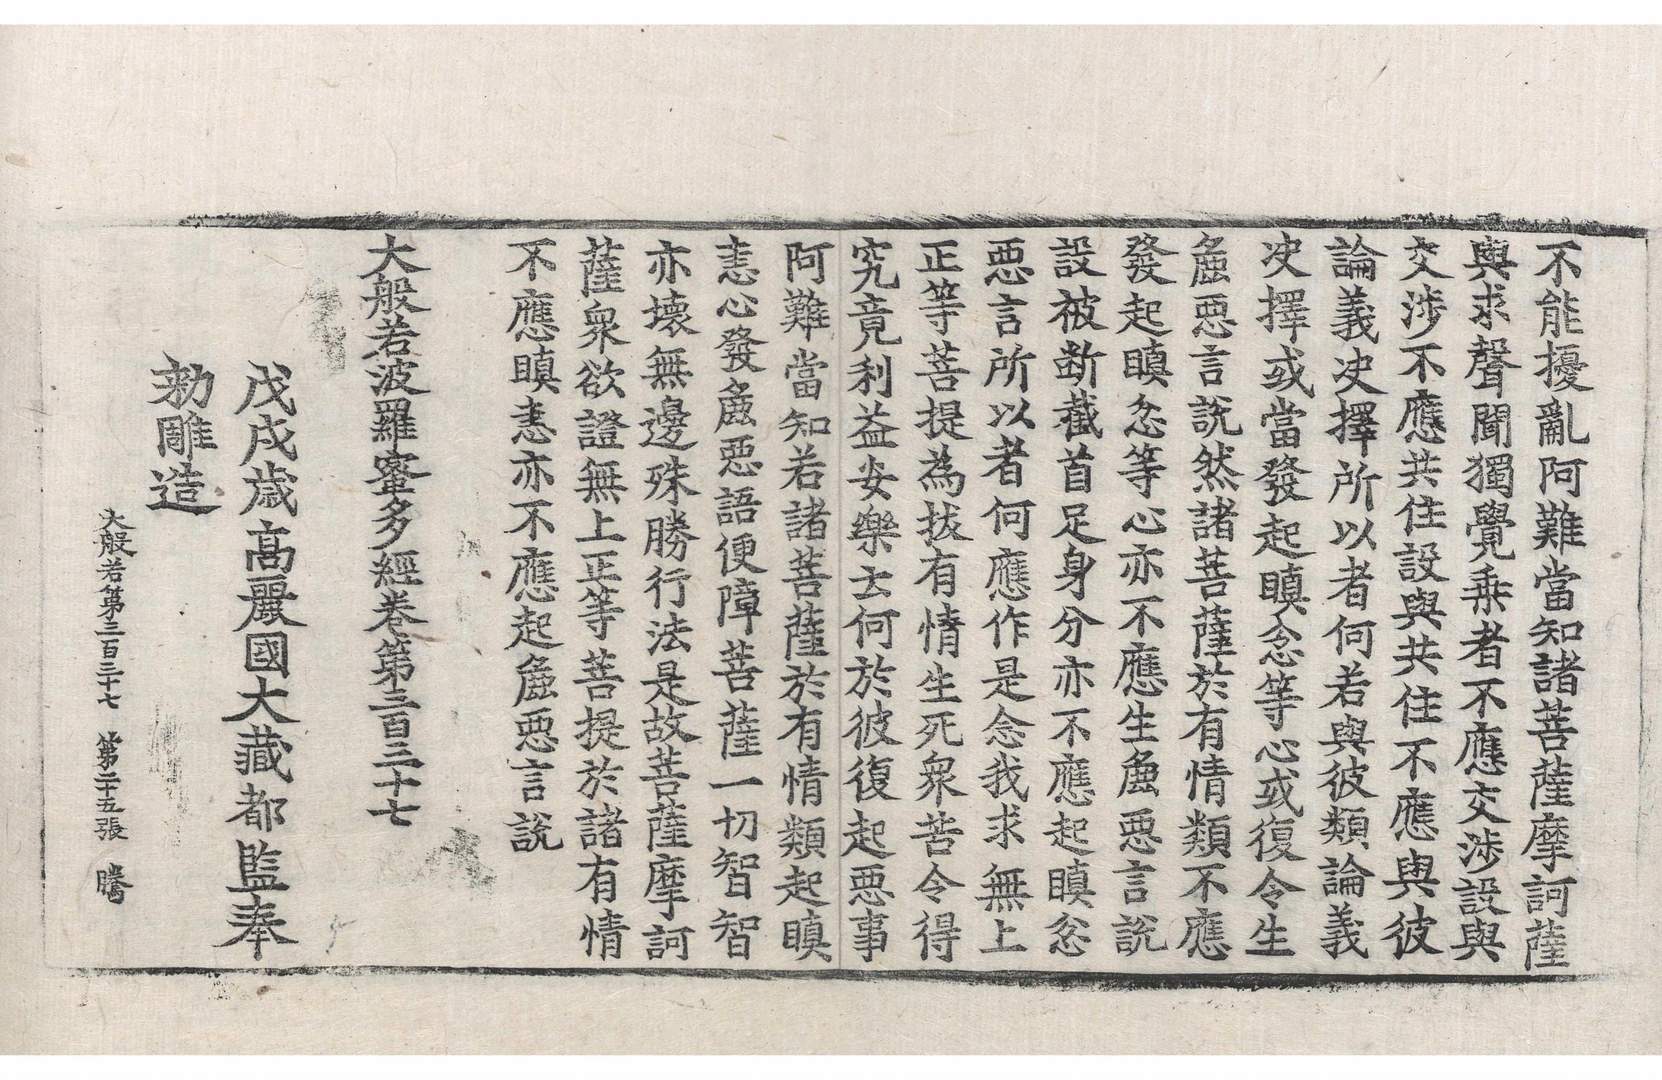 不能擾亂阿難當知諸菩薩摩訶薩
與求聲聞獨覺乘者不應交涉設與
交涉不應共住設與共住不應與彼
論義決擇所以者何若與彼類論義
決擇或當發起瞋忿等心或復令生
麁惡言說然諸菩薩於有情類不應
發起瞋忿等心亦不應生麁惡言說
設被斷截首足身分亦不應起瞋忿
惡言所以者何應作是念我求無上
正等菩提為拔有情生死衆苦令得
究竟利益安樂云何於彼復起惡事
阿難當知若諸菩薩於有情類起瞋
恚心發麁惡語便障菩薩一切智智
亦壞無邊殊勝行法是故菩薩摩訶
薩衆欲證無上正等菩提於諸有情
不應瞋恚亦不應起麁惡言說
大般若波羅蜜多經卷第三百三十七
戊戌歲高麗國大藏都監奉
勑雕造
大般若第三百三十七 第二十五張 騰